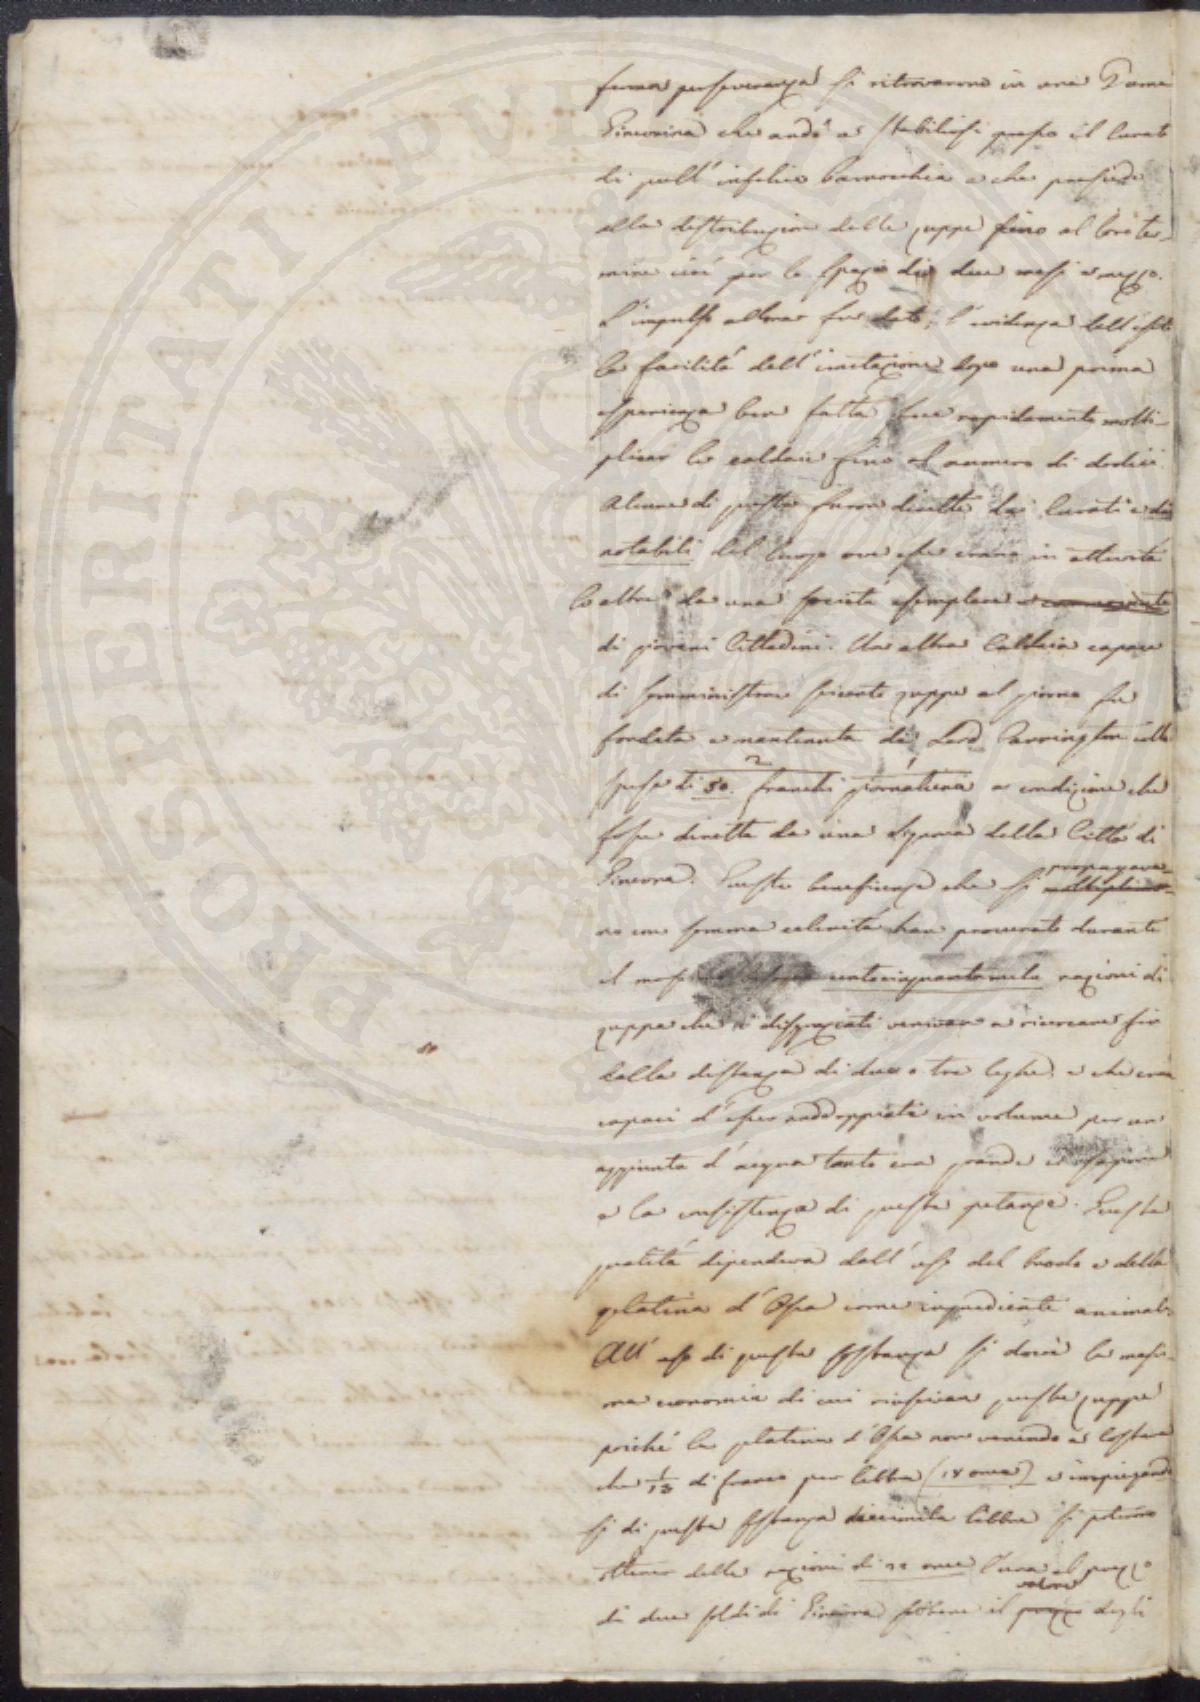 ferma perseveranza si ritrovarono in una Dama
Ginevrina che andò a stabilirsi presso il Curato
di quell'infelice Parrocchia e che presiede
alla distribuzione delle zuppe fino al loro ter-
mine cioè per lo spazio di due mesi e mezzo.
L'impulso allora fu dato; l'evidenza dell'esito
la facilità dell'imitazione dopo una prima
esperienza ben fatta fece rapidamente molti-
plicar le caldaie fino al numero di dodici.
Alcune di queste furon dirette dai Curati e dai
notabili del luogo ove esse erano in attività
le altre da una società esemplare e
di giovani Cittadini. Un altra Caldaia capace
di somministrare seicento zuppe al giorno fu
fondata e mantenuta da Lord Barrington colla
spesa di 50. franchi giornalieri a condizione che
2 1
fosse diretta da una Signora della Città di
Ginevra. Queste beneficenze che si propagava-
no con somma celerità han procurato durante
il mese centocinquantamila razioni di
zuppe che i disgraziati venivan a ricercare fin
dalla distanza di due o tre leghe, e che eran
capaci d'esser raddoppiate in volume per un
aggiunta d'acqua tanto era grande il sapore
e la consistenza di queste pietanze. Questa
qualità dipendeva dall'uso del brodo e della
gelatina d'Ossa come ingrediente animale.
All'uso di questa sostanza si dovè la massi-
ma economia di cui riuscivan queste zuppe
poiché la gelatina d'Ossa non venendo a costare
che 1/13 di franco per libbra (18 once) e impiegando
si di questa sostanza diecimila libbre si poterono
ottener delle razioni di once l'una al prezzo
di due soldi di Ginevra sebbene il prezzo valore degli
PROSPERITATI PUBLICAE